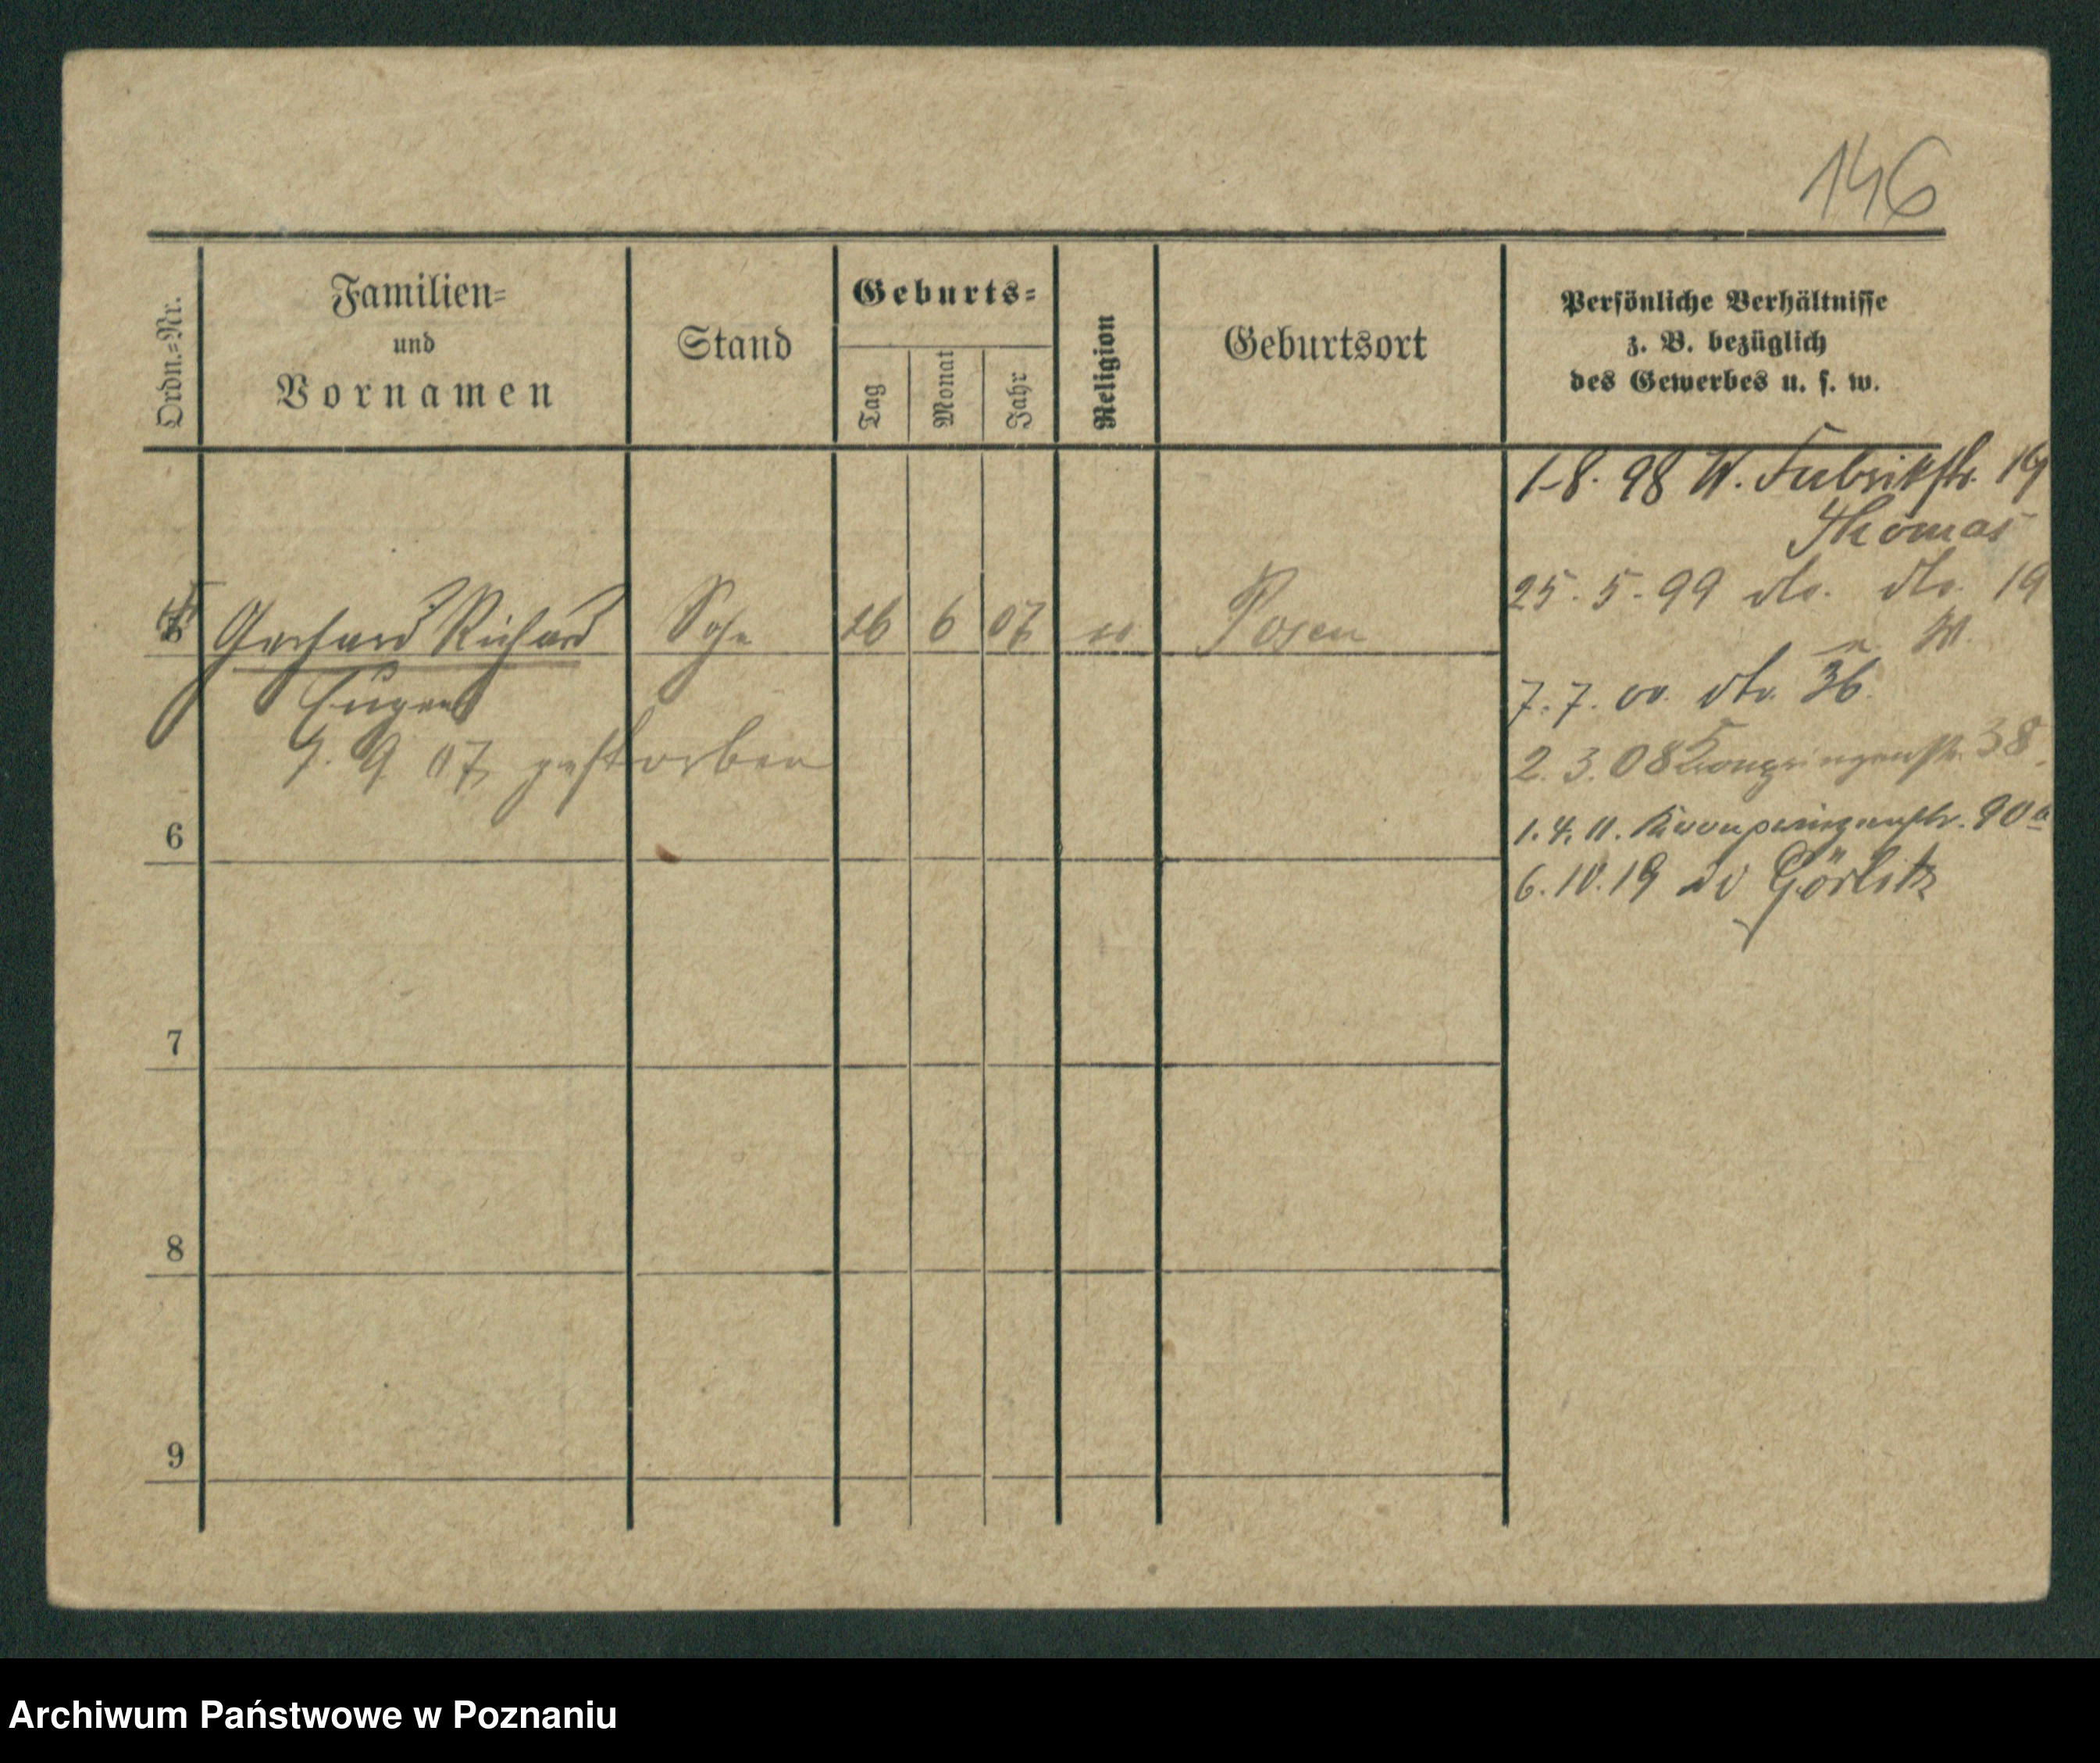 146
Ordn.=Nr.
Familien=
und
Vornamen
Stand
Geburts=
Tag
Monat
Jahr
Religion
Geburtsort
Persönliche Verhältnisse
z. B. bezüglich
des Gewerbes u. s. w.
1-8. 98 W. Fabrikstr. 19
Thomas
25. 5. 99 dto. dto. 19
W.
7. 7. 00. dto. 36.
2. 3. 08 Kronprinzenstr. 38.
1. 4. 11. Kronprinzenstr. 90a
6. 10. 19 Görlitz
Gerhard Richard Sohn 26 6 07 Posen
Eugen
7. 9 07 gestorben
6
7
8
9
Archiwum Państwowe w Poznaniu